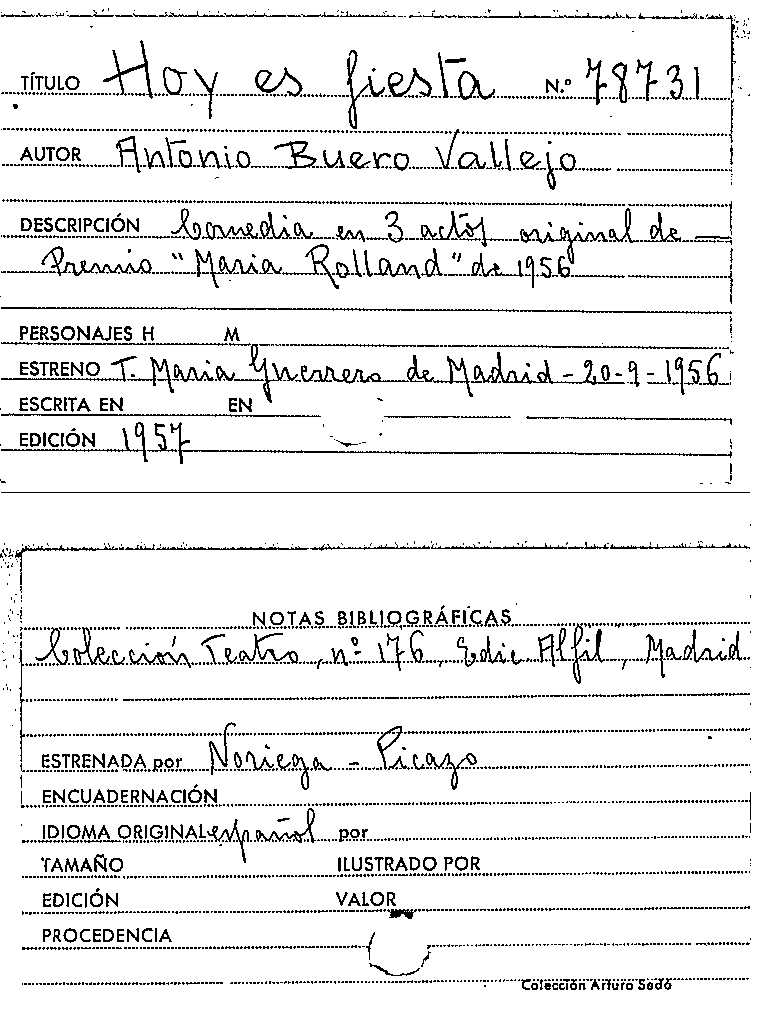 TÍTULO Hoy es fiesta N.º 78731
AUTOR Antonio Buero Vallejo
DESCRIPCIÓN Comedia en 3 actos original de —
Premio "Maria Rolland" de 1956
PERSONAJES H M
ESTRENO T. Maria Guerrero de Madrid - 20-9-1956
ESCRITA EN EN
EDICIÓN 1957
NOTAS BIBLIOGRÁFICAS
Colección Teatro, nº 176, Edic Alfil, Madrid
ESTRENADA por Noriega - Picazo
ENCUADERNACIÓN
IDIOMA ORIGINAL español por
TAMAÑO ILUSTRADO POR
EDICIÓN VALOR
PROCEDENCIA
Colección Arturo Sedó